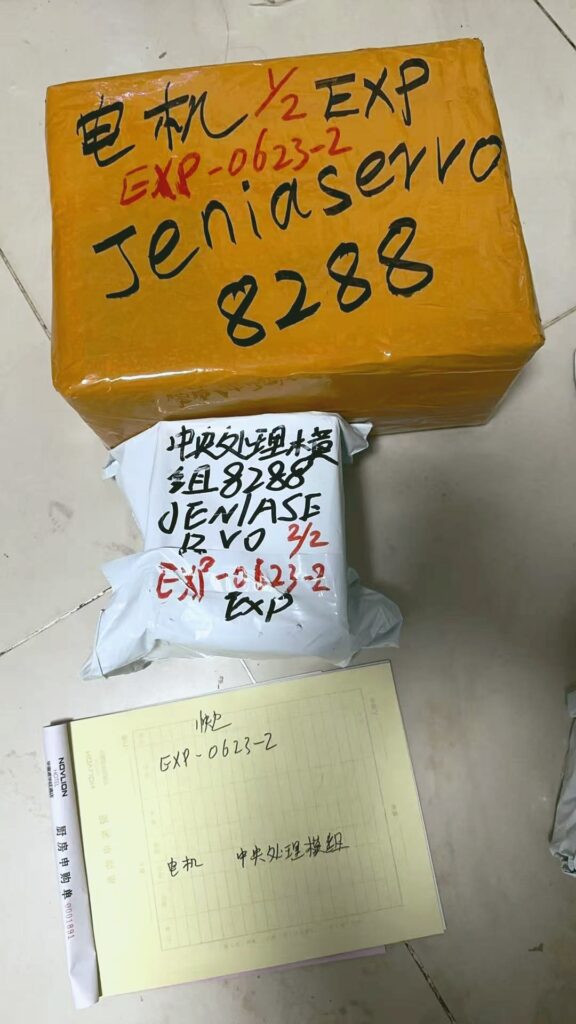 电机 1/2 EXP
EXP-0623-2
Jeniaservo
8288
中央处理模
组8288
JENIASE
RVO 2/2
EXP-0623-2
EXP
EXP-0623-2
电机 中央处理模组
NOVLION
HOTEL
厨房申购单 0001891